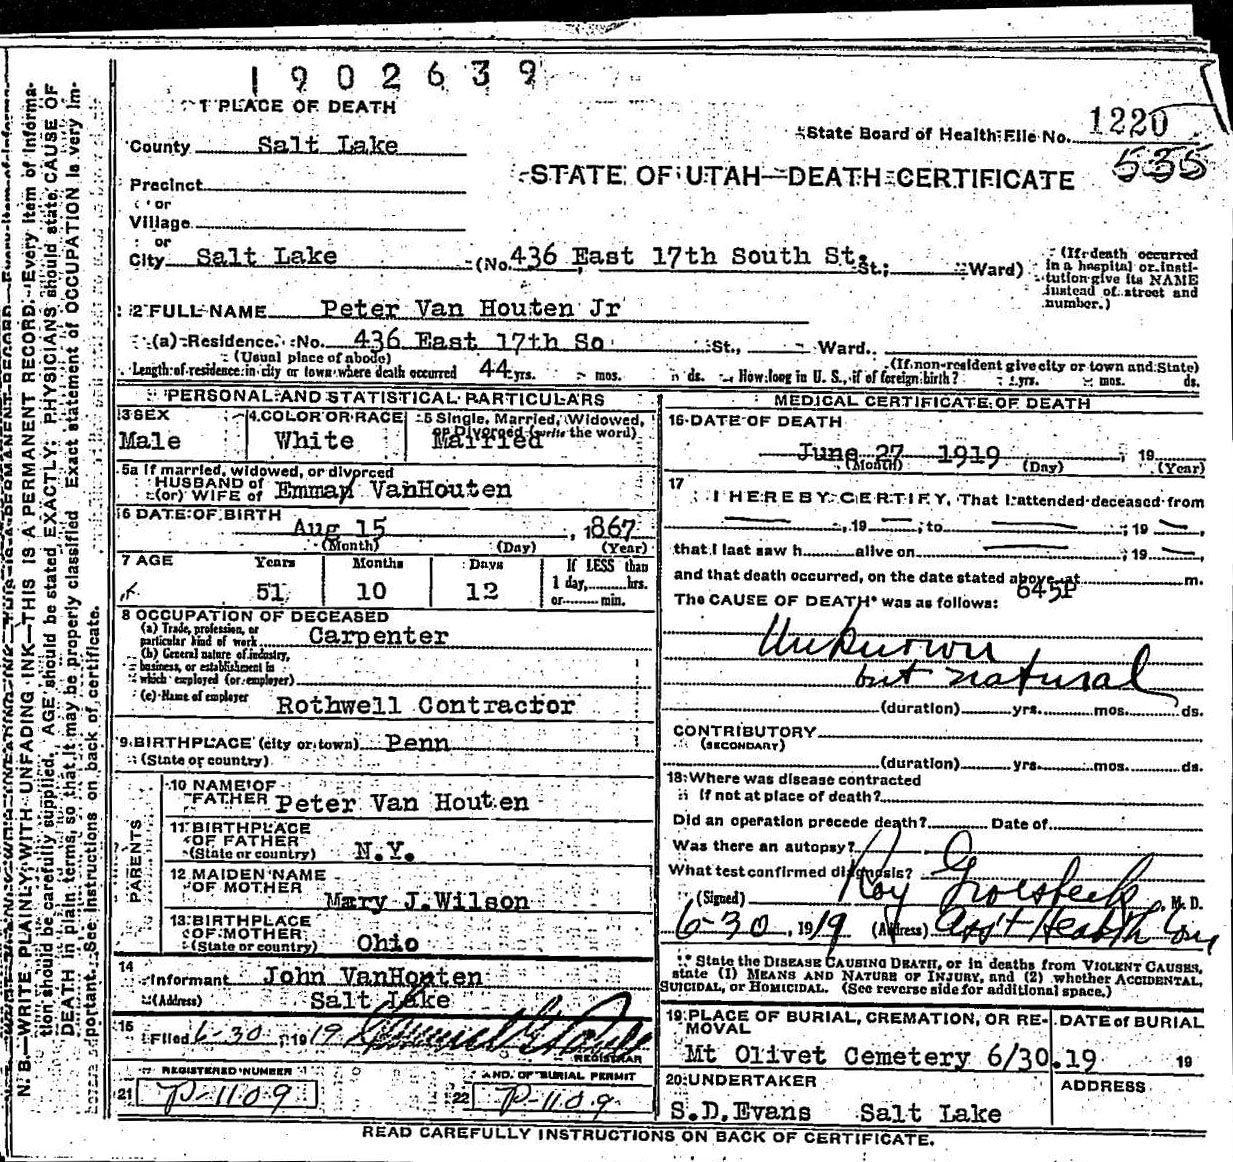 1902639
1 PLACE OF DEATH
County Salt Lake
State Board of Health File No. 1220
535
STATE OF UTAH—DEATH CERTIFICATE
Precinct
or
Village
or
City Salt Lake (No. 436 East 17th South St. St.; Ward)
(If death occurred in a hospital or insti-
tution give its NAME
instead of street and
number.)
2 FULL NAME Peter Van Houten Jr
(a) Residence. No. 436 East 17th So St., Ward.
(Usual place of abode) (If non-resident give city or town and State)
Length of residence in city or town where death occurred 44 yrs. mos. ds. How long in U. S., if of foreign birth? yrs. mos. ds.
PERSONAL AND STATISTICAL PARTICULARS
3 SEX
Male
4 COLOR OR RACE
White
5 Single, Married, Widowed,
or Divorced (write the word)
Married
5a If married, widowed, or divorced
HUSBAND of
(or) WIFE of Emma VanHouten
6 DATE OF BIRTH
Aug 15, 1867
(Month) (Day) (Year)
7 AGE Years Months Days If LESS than
1 day, hrs.
or min.
51 10 12
8 OCCUPATION OF DECEASED
(a) Trade, profession, or
particular kind of work Carpenter
(b) General nature of industry,
business, or establishment in
which employed (or employer)
(c) Name of employer Rothwell Contractor
9 BIRTHPLACE (city or town) Penn
(State or country)
PARENTS
10 NAME OF
FATHER Peter Van Houten
11 BIRTHPLACE
OF FATHER
(State or country) N.Y.
12 MAIDEN NAME
OF MOTHER
Mary J.Wilson
13 BIRTHPLACE
OF MOTHER
(State or country) Ohio
14
Informant John VanHouten
(Address) Salt Lake
15
Filed 6-30, 1919
REGISTRAR
REGISTERED NUMBER
21 P-1109
AND OF BURIAL PERMIT
22 P-1109
MEDICAL CERTIFICATE OF DEATH
16 DATE OF DEATH
June 27 1919, 19
(Month) (Day) (Year)
17
I HEREBY CERTIFY, That I attended deceased from
, 19 , to , 19 ,
that I last saw h alive on , 19 ,
and that death occurred, on the date stated above, at m.
645P
The CAUSE OF DEATH* was as follows:
Unknown
but natural
(duration) yrs. mos. ds.
CONTRIBUTORY
(SECONDARY)
(duration) yrs. mos. ds.
18 Where was disease contracted
if not at place of death?
Did an operation precede death? Date of
Was there an autopsy?
What test confirmed diagnosis?
(Signed) Roy G Groesbeck, M. D.
6-30, 1919 (Address) Ass't Health Com
* State the DISEASE CAUSING DEATH, or in deaths from VIOLENT CAUSES,
state (1) MEANS AND NATURE OF INJURY, and (2) whether ACCIDENTAL,
SUICIDAL, or HOMICIDAL. (See reverse side for additional space.)
19 PLACE OF BURIAL, CREMATION, OR RE-
MOVAL
DATE of BURIAL
Mt Olivet Cemetery 6/30.19 19
20 UNDERTAKER
ADDRESS
S.D.Evans Salt Lake
READ CAREFULLY INSTRUCTIONS ON BACK OF CERTIFICATE.
N. B.—WRITE PLAINLY WITH UNFADING INK—THIS IS A PERMANENT RECORD. Every item of informa-
tion should be carefully supplied. AGE should be stated EXACTLY. PHYSICIANS should state CAUSE OF
DEATH in plain terms, so that it may be properly classified. Exact statement of OCCUPATION is very im-
portant. See instructions on back of certificate.